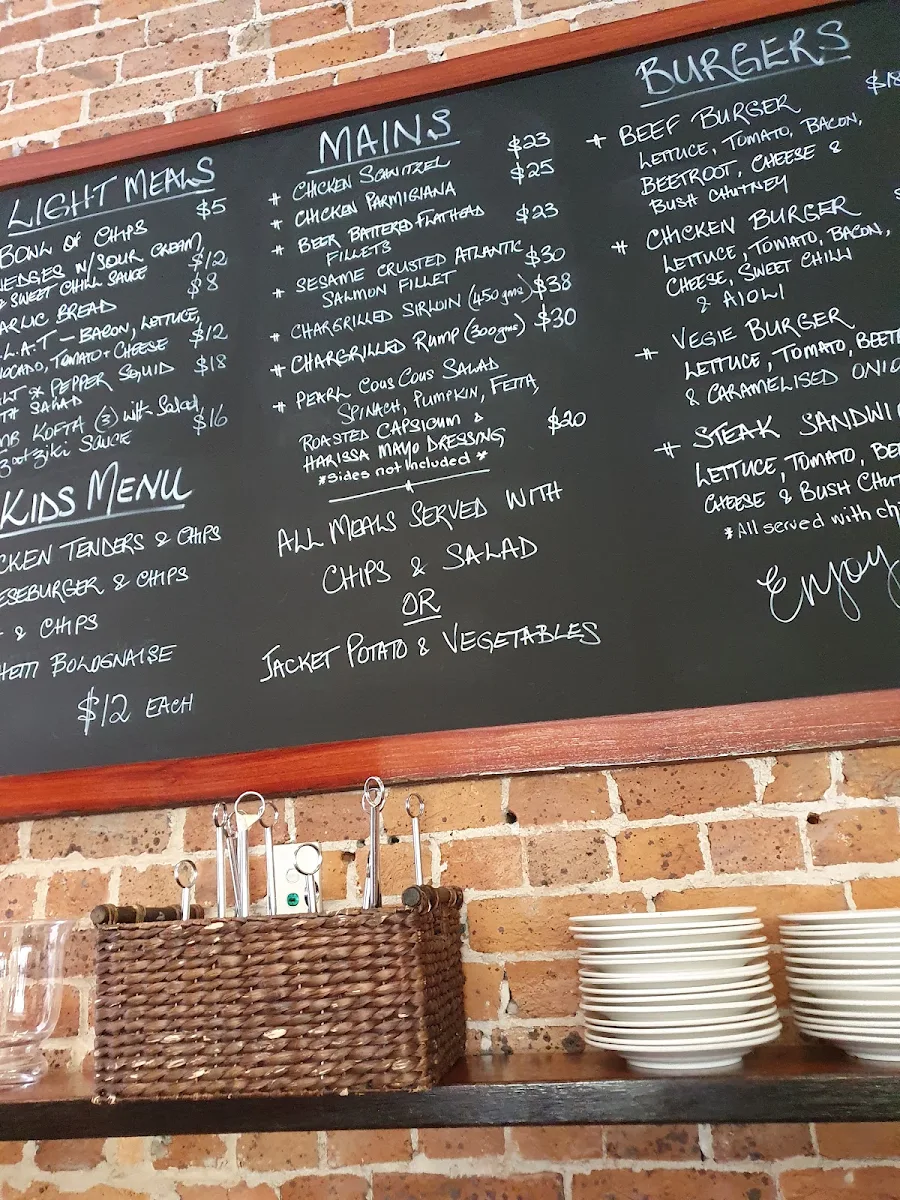 LIGHT MEALS
BOWL OF CHIPS $5
W/SOUR CREAM,
& SWEET CHILLI SAUCE $12
BREAD $8
L.A.T - BACON, LETTUCE,
TOMATO + CHEESE $12
& PEPPER SQUID $18
SALAD
KOFTA (3) with Salad,
SAUCE $16
KIDS MENU
TENDERS & CHIPS
& CHIPS
& CHIPS
BOLOGNAISE
$12 EACH
MAINS
* CHICKEN SCHNITZEL $23
* CHICKEN PARMIGIANA $25
* BEER BATTERED FLATHEAD $23
FILLETS
* SESAME CRUSTED ATLANTIC $30
SALMON FILLET
* CHARGRILLED SIRLOIN (450gms) $38
* CHARGRILLED RUMP (300gms) $30
* PEARL COUS COUS SALAD
SPINACH, PUMPKIN, FETTA,
ROASTED CAPSICUM & $20
HARISSA MAYO DRESSING
*Sides not Included *
ALL MEALS SERVED WITH
CHIPS & SALAD
OR
JACKET POTATO & VEGETABLES
BURGERS
* BEEF BURGER $18
LETTUCE, TOMATO, BACON,
BEETROOT, CHEESE &
BUSH CHUTNEY
* CHICKEN BURGER
LETTUCE, TOMATO, BACON,
CHEESE, SWEET CHILLI
& AIOLI
* VEGIE BURGER
LETTUCE, TOMATO,
& CARAMELISED
* STEAK
LETTUCE, TOMATO,
CHEESE & BUSH
*All served with
Enjoy